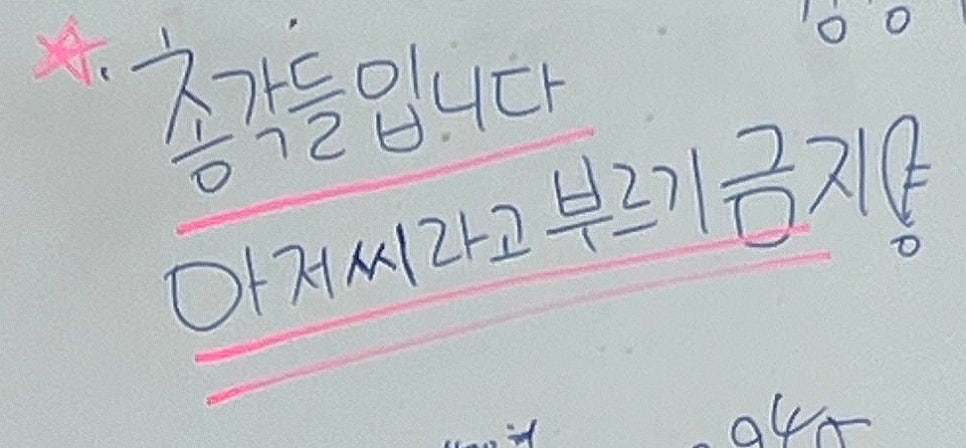 총각들입니다
아저씨라고 부르기 금지양